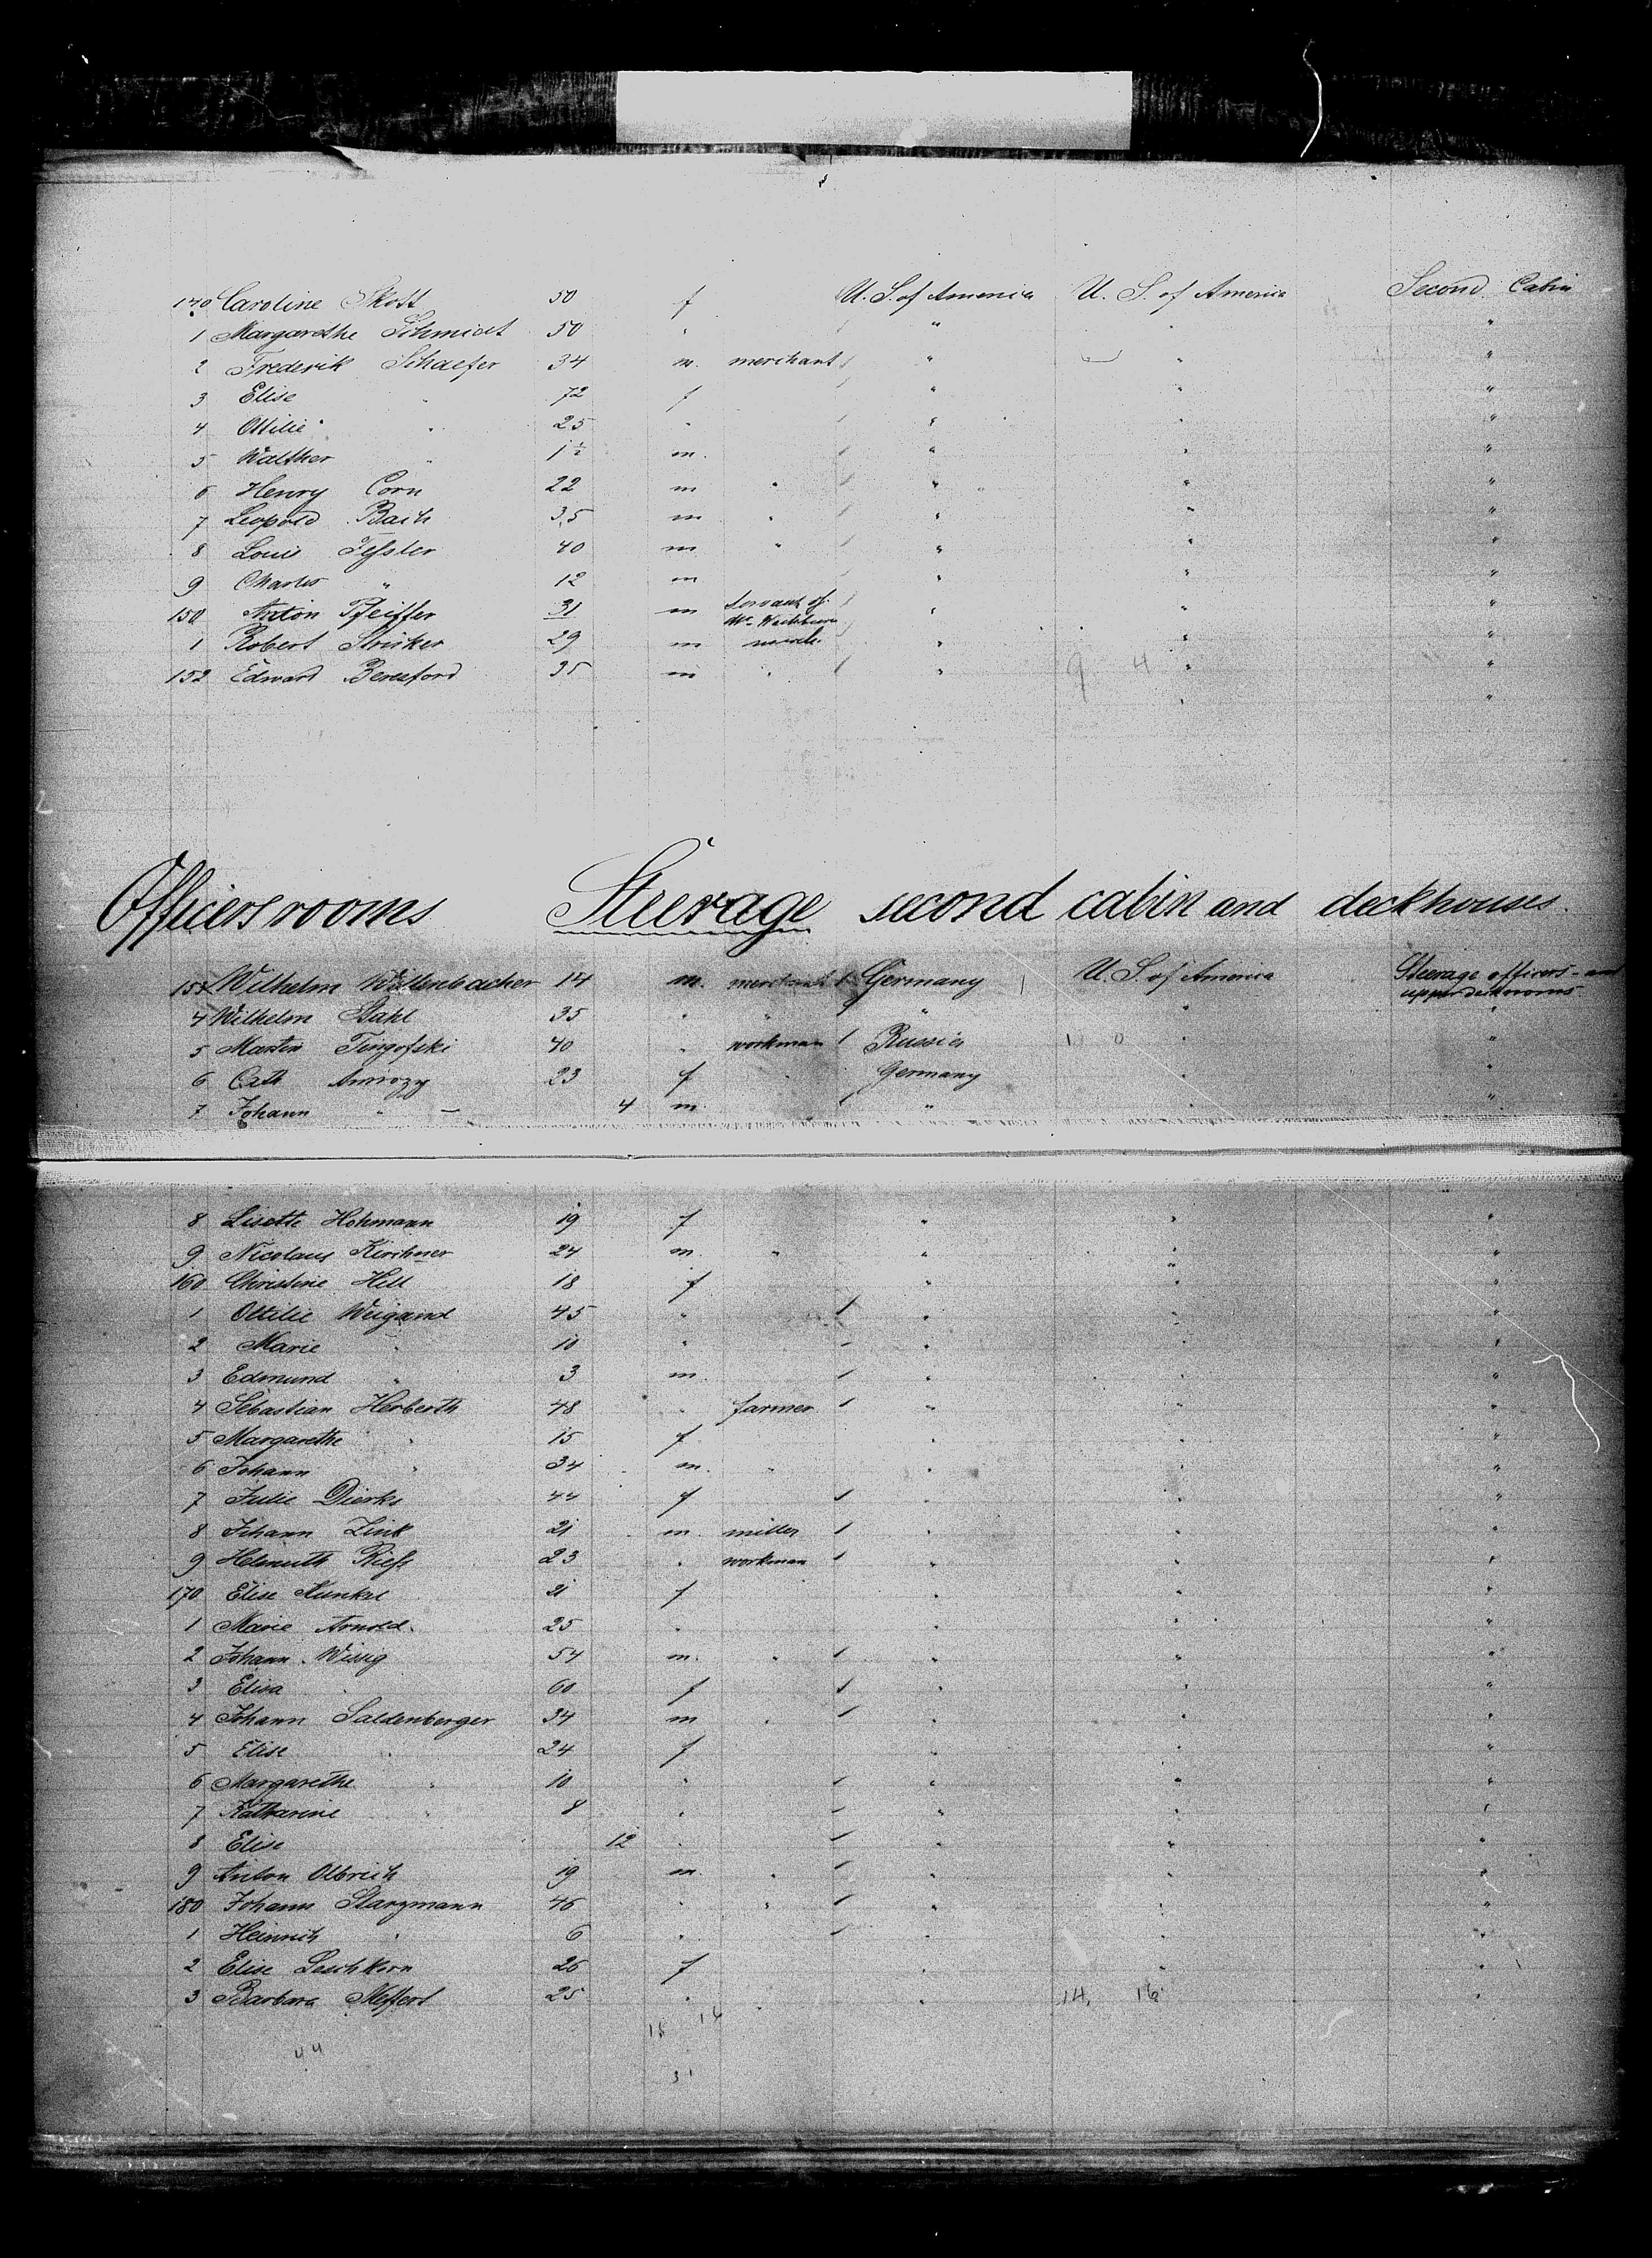 170 Caroline Skott 50 f U. S. of America U. S. of America Second Cabin
1 Margarethe Schmidt 50 " " " "
2 Frederik Schaefer 34 m. merchant " " "
3 Elise " 72 f " " "
4 Ottilie " 25 " " " "
5 Walther " 1½ m. " " "
6 Henry Corn 22 m " " " "
7 Leopold Bach 35 m " " " "
8 Louis Tessler 40 m " " " "
9 Charles " 12 m " " "
150 Anton Pfeiffer 31 m Servant of Mr. " " "
1 Robert Stricker 29 m " " "
152 Edward Beresford 35 m " " 9 4 " "
" "
Officers rooms Steerage second cabin and deckhouses.
153 Wilhelm Wittenbacher 14 m. merchant Germany U. S. of America Steerage officers- and upperdeckrooms
4 Wilhelm Stahl 35 " " " " "
5 Martin Tingofski 40 " workman Russia 1 0 " "
6 Cath 23 f Germany " "
7 Johann " 4 m. " " "
8 Lisette Hohmann 19 f " " "
9 Nicolaus Kirchner 24 m. " " " "
160 Christine Hell 18 f " " "
1 Ottilie Weigand 45 " " " "
2 Marie " 10 " " " "
3 Edmund " 3 m. " " "
4 Sebastian Herberth 48 " farmer " " "
5 Margarethe " 15 f " " "
6 Johann " 34 m. " " " "
7 Julie Dierks 44 f " " "
8 Johann Zink 21 m miller " " "
9 Helmuth Riefs 23 " workman " " "
170 Elise Kunkel 21 f " " "
1 Marie Arnold. 25 " " " "
2 Johann Wissig 54 m. " " " "
3 Elisa " 60 f " " "
4 Johann Saldenberger 34 m " " " "
5 Elise " 24 f " " "
6 Margarethe " 10 " " " "
7 Katharine " 8 " " " "
8 Elise " 12 " " " "
9 Anton Olbrich 19 m. " " " "
180 Johann Starzmann 46 " " " " "
1 Heinrich " 6 " " " "
2 Elise Leschkorn 26 f " " "
3 Barbara Meffert 25 " " 14, 16 "
15 16
44
31